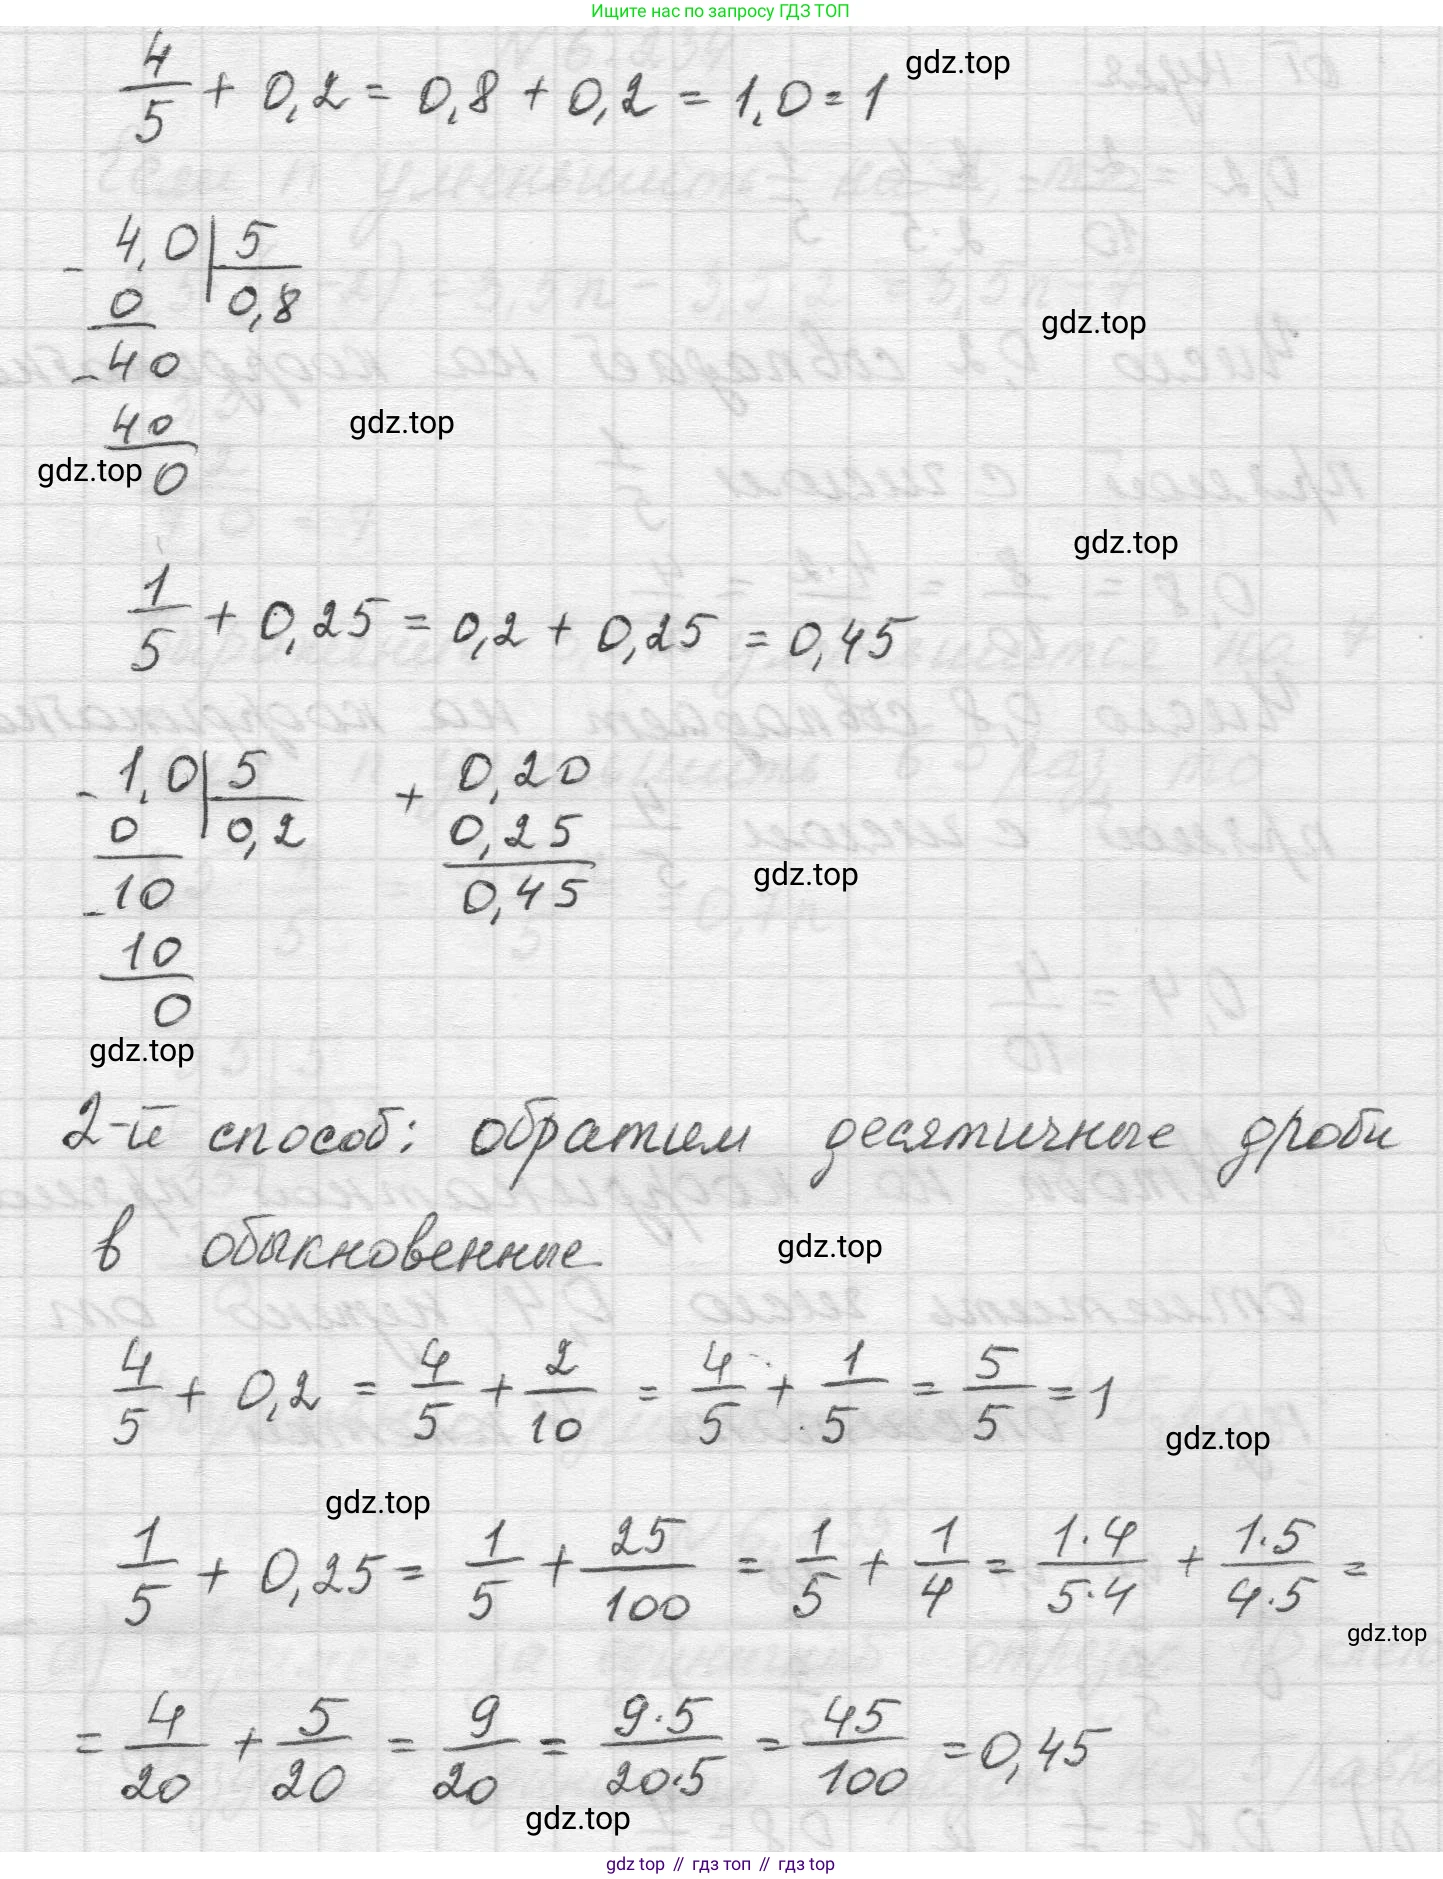 Ищите нас по запросу ГДЗ ТОП
4/5 + 0,2 = 0,8 + 0,2 = 1,0 = 1
gdz.top
- 4,0 | 5
0 0,8
gdz.top
- 40
40
gdz.top
gdz.top
0
gdz.top
1/5 + 0,25 = 0,2 + 0,25 = 0,45
- 1,0 | 5 + 0,20
0 0,2 0,25
- 10 0,45
gdz.top
10
0
gdz.top
2-й способ: обратим десятичные дроби
в обыкновенные
gdz.top
4/5 + 0,2 = 4/5 + 2/10 = 4/5 + 1/5 = 5/5 = 1
gdz.top
gdz.top
1/5 + 0,25 = 1/5 + 25/100 = 1/5 + 1/4 = 1·4/5·4 + 1·5/4·5 =
gdz.top
= 4/20 + 5/20 = 9/20 = 9·5/20·5 = 45/100 = 0,45
gdz.top
gdz top // гдз топ // гдз top